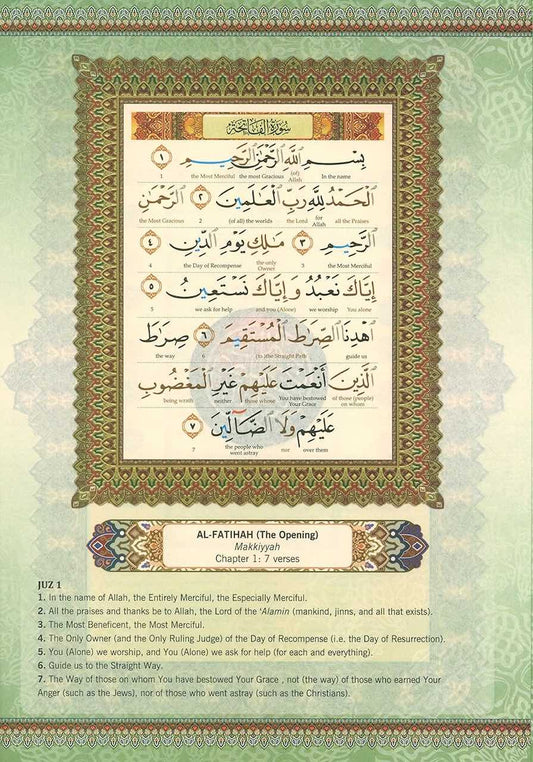 سورة الفاتحة
بِسْمِ ٱللَّهِ ٱلرَّحْمَٰنِ ٱلرَّحِيمِ ١
In the name (of) Allah the most Gracious the Most Merciful 1
ٱلْحَمْدُ لِلَّهِ رَبِّ ٱلْعَٰلَمِينَ ٢ ٱلرَّحْمَٰنِ
all the Praises for Allah the Lord (of all) the worlds 2 the Most Gracious
ٱلرَّحِيمِ ٣ مَٰلِكِ يَوْمِ ٱلدِّينِ ٤
the Most Merciful 3 the only Owner the Day of Recompense 4
إِيَّاكَ نَعْبُدُ وَإِيَّاكَ نَسْتَعِينُ ٥
You alone we worship and you (Alone) we ask for help 5
ٱهْدِنَا ٱلصِّرَٰطَ ٱلْمُسْتَقِيمَ ٦ صِرَٰطَ
guide us (to)the Straight Path 6 the way
ٱلَّذِينَ أَنْعَمْتَ عَلَيْهِمْ غَيْرِ ٱلْمَغْضُوبِ
of those (people) on whom You have bestowed Your Grace those whose neither being wrath
عَلَيْهِمْ وَلَا ٱلضَّآلِّينَ ٧
over them nor the people who went astray 7
AL-FATIHAH (The Opening)
Makkiyyah
Chapter 1: 7 verses
JUZ 1
1. In the name of Allah, the Entirely Merciful, the Especially Merciful.
2. All the praises and thanks be to Allah, the Lord of the 'Alamin (mankind, jinns, and all that exists).
3. The Most Beneficent, the Most Merciful.
4. The Only Owner (and the Only Ruling Judge) of the Day of Recompense (i.e. the Day of Resurrection).
5. You (Alone) we worship, and You (Alone) we ask for help (for each and everything).
6. Guide us to the Straight Way.
7. The Way of those on whom You have bestowed Your Grace , not (the way) of those who earned Your
Anger (such as the Jews), nor of those who went astray (such as the Christians).